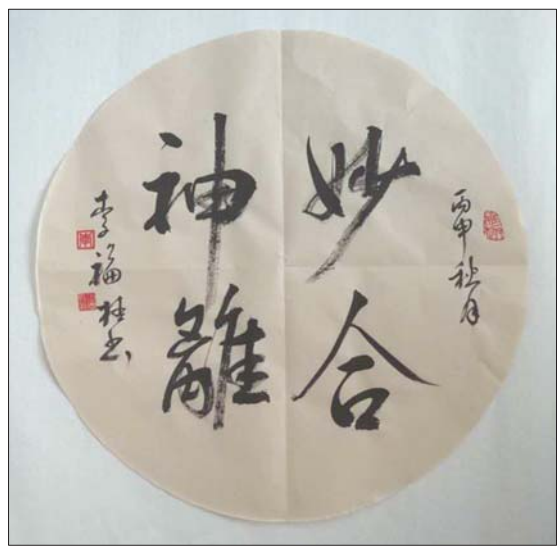 丙申秋月
妙合
神離
李福柱书